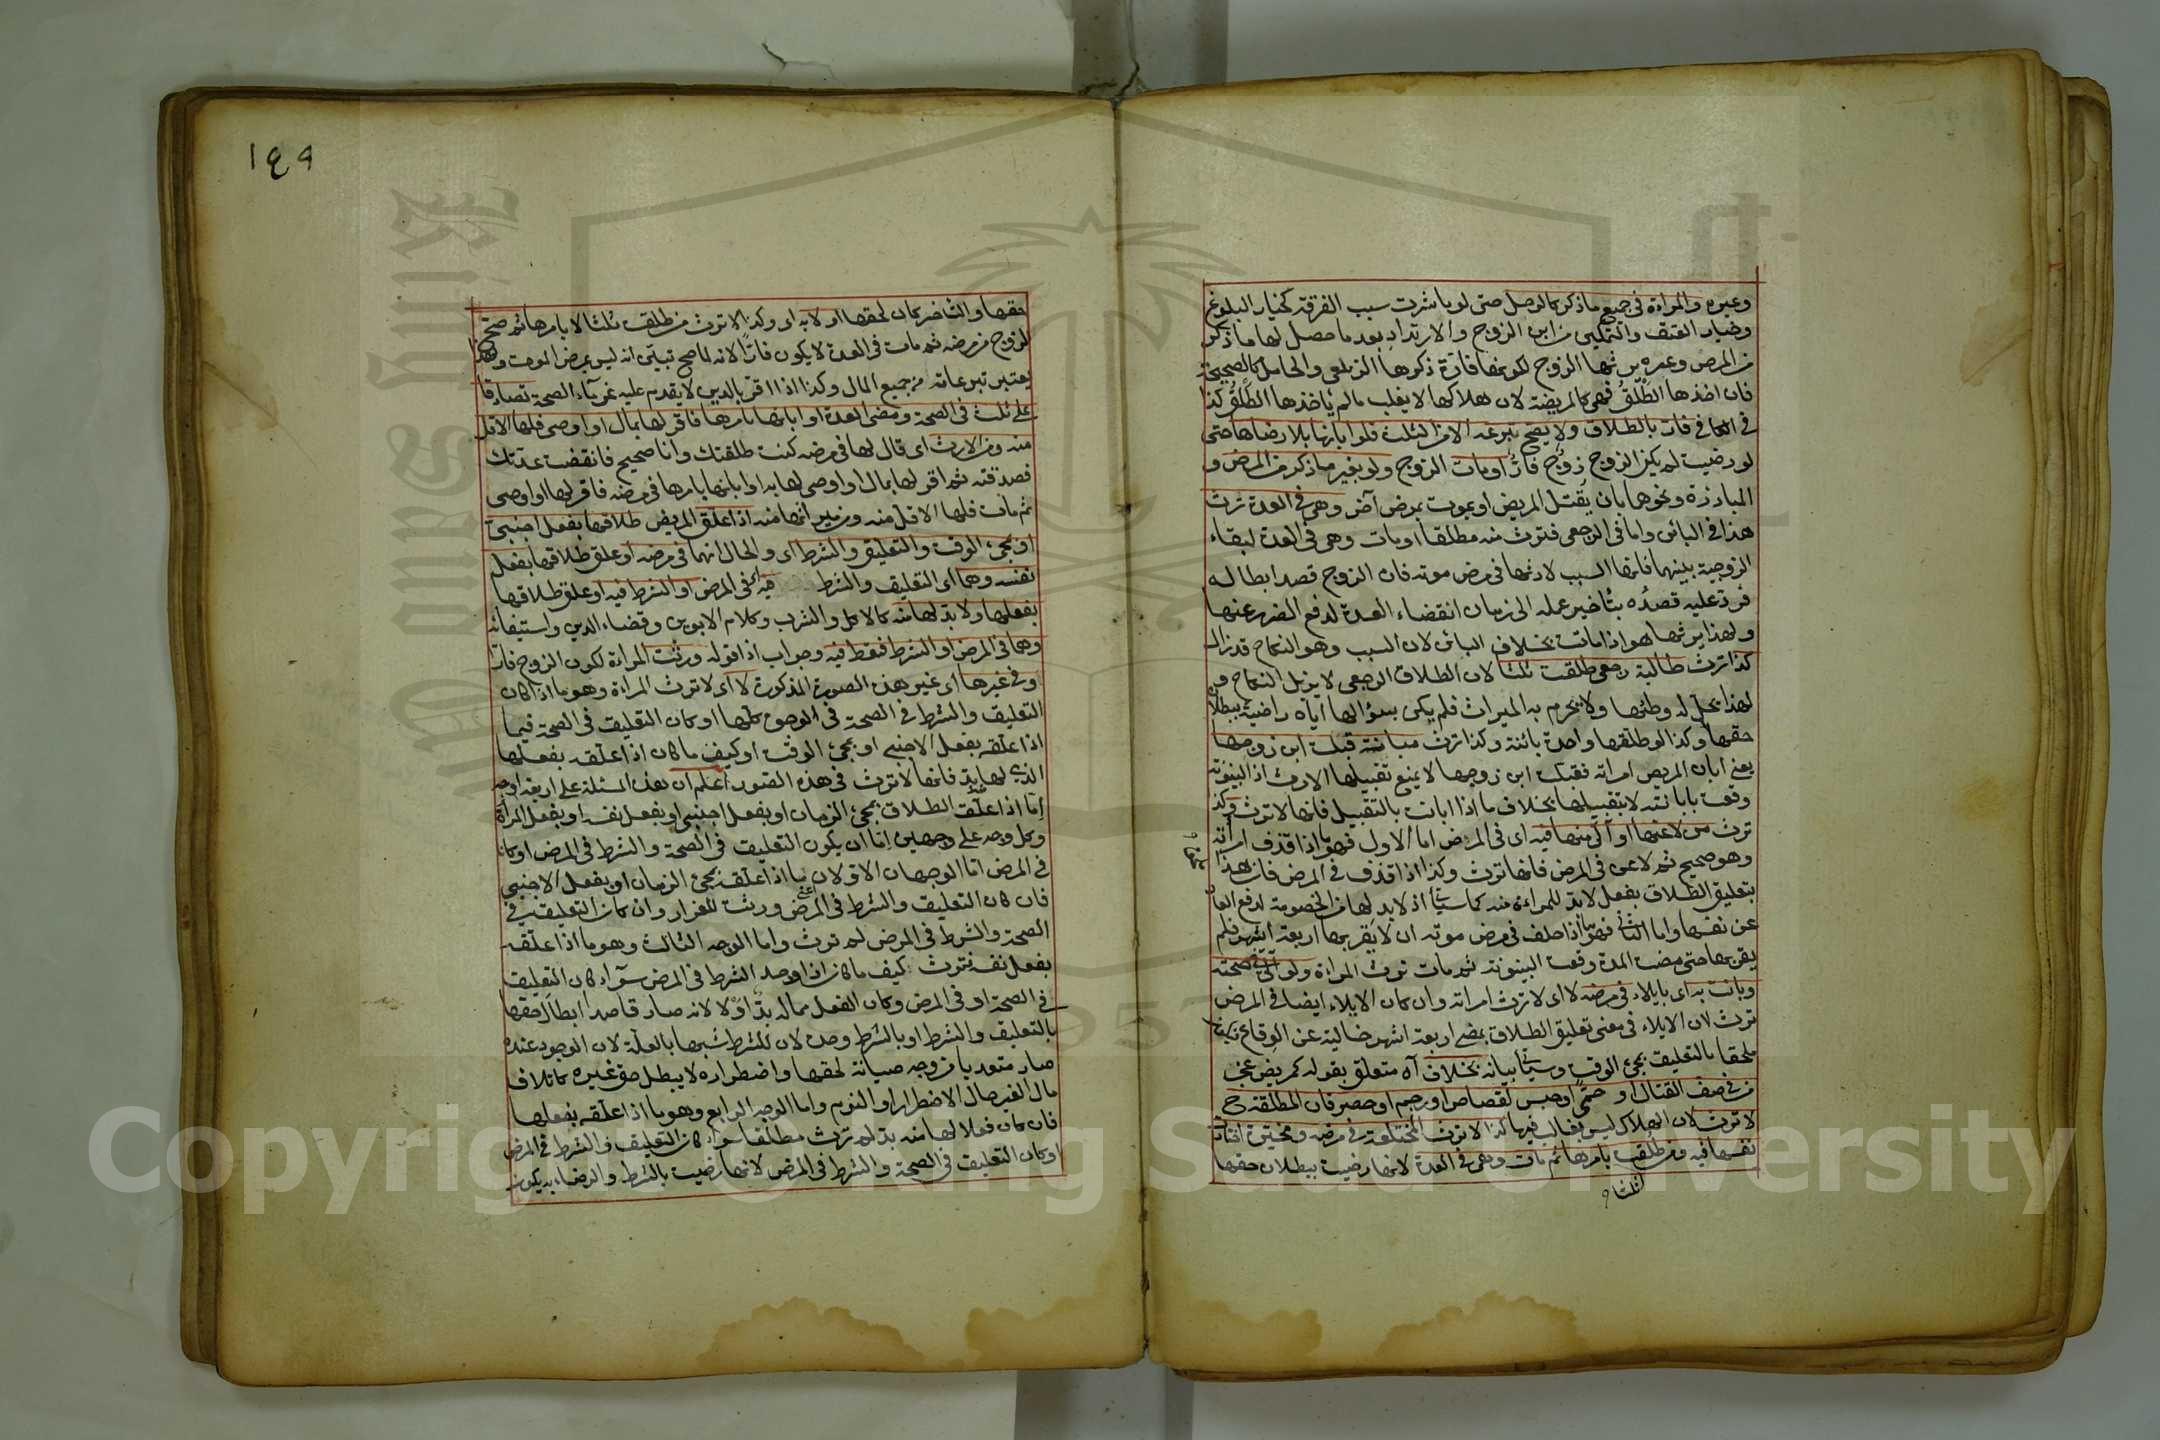 وغيره والمراءة في جميع ما ذكر كالرجل حتى لو باشرت سبب الفرقة كخيار البلوغ
وخيار العتق والتمكين من ابن الزوج والارتداد بعد ما حصل لها ما ذكر
من المرض وغيره يرثها الزوج لكونها فارّة ذكرها الزيلعي والحامل كالصحيحة
فان اخذها الطّلْقُ فهي كالمريضة لان هلاكها لا يغلب مالم يأخذها الطّلْق كذا
في الكافي فارّ بالطلاق ولا يصح تبرعه الا من الثلث فلو ابانها بلا رضاها حتى
لو رضيت لم يكن الزوج زوج فارّ او مات الزوج ولو بغير ما ذكر من المرض و
المبارزة ونحوها بان يقتل المريض او يموت بمرض آخر وهي في العدة ترث
هذا في البائن واما في الرجعي فترث منه مطلقا اومات وهي في العدة لبقاء
الزوجية بينهما فانها السبب لارثها في مرض موته فان الزوج قصد ابطاله
فردّ عليه قصدُه بتأخير عمله الى زمان انقضاء العدة لدفع الضرر عنها
ولهذا يرثها هو اذا ماتت بخلاف البائن لان السبب وهو النكاح قد زال
كذا ترث طالبة رجعي طلقت ثلثا لان الطلاق الرجعي لا يزيل النكاح و
لهذا يحل له وطئها ولا يحرم به الميراث فلم يكن بسؤالها اياه راضية ببطلان
حقها وكذا لو طلقها واحدة بائنة وكذا ترث مبانة قبلت ابن زوجها
يعني ابان المريض امراته فقبلت ابن زوجها لا يمنع تقبيلها الارث اذ البينونة
وقعت بابانته لا بتقبيلها بخلاف ما اذا ابانت بالتقبيل فانها لا ترث وكذا
ترث من لاعنها او آلى منها فيه اى في المرض اما الاول فهو ما اذا قذف امرأته
وهو صحيح ثم لاعن في المرض فانها ترث وكذا اذا قذف في المرض فان هذا
بتعليق الطلاق بفعل لا بد للمراءة منه كما سيأتي اذ لا بد لها من الخصومة لدفع العار
عن نفسها واما الثاني فهو ما اذا حلف في مرض موته ان لا يقربها اربعة اشهر فلم
يقربها حتى مضت المدة وقعت البينونة ثم مات ترث المراءة ولو آلى في صحته
وبانت به اى بايلاء في مرضه لا اى لا ترث امراته وان كان الايلاء ايضا في المرض
ترث لان الايلاء في معنى تعليق الطلاق بمضي اربعة اشهر خالية عن الوقاع
ملحقا بالتعليق بمجئ الوقت وسيأتي بيانه بخلاف آه متعلق بقوله كمريض عجز
من في صف القتال او حمّى او حبس لقصاص او رجم او حصر فان المطلقة ح
لا ترث لان الهلاك ليس بغالب فيها كذا لا ترث المختلعة في مرضه ومخيّرة اختارت
نفسها فيه ومن طلقت بامرها ثم مات وهي في العدة لانها رضيت ببطلان حقها
حقها والتأخير كان لحقها اولا به اى وكذا لا ترث من طلقت ثلثا لا بامرها ثم صح
الزوج من مرضه ثم مات في العدة لا يكون فارًّا لانه لما صح تبيّن انه ليس بمرض الموت
يعتبر تبرعاته من جميع المال وكذا اذا اقرّ بالدين لا يقدم عليه غرماء الصحة تصادقا
على ثلث في الصحة ومضى العدة او ابانها بامرها فاقر لها بمال او اوصى فلها الاقل
منه ومن الارث اى قال لها في مرضه كنت طلقتك وانا صحيح فانقضت عدتك
فصدقته ثم اقر لها بمال او اوصى لها به او ابانها بامرها في مرضه فاقر لها او اوصى
ثم مات فلها الاقل منه ومن ميراثها منه اذا علق المريض طلاقها بفعل اجنبيّ
او بمجئ الوقت والتعليق والشرط اى والحال انهما في مرضه او علق طلاقها بفعل
نفسه وهما اى التعليق والشرط فيه اى في المرض او الشرط فيه او علق طلاقها
بفعلها ولا بد لها منه كالاكل والشرب وكلام الابوين وقضاء الدين واستيفائه
وهما في المرض او الشرط فقط فيه وجواب اذا قوله ورثت المراءة لكون الزوج فارّا
وفي غيرها اى غير هذه الصورة المذكورة لا اى لا ترث المراءة وهو ما اذا كان
التعليق والشرط في الصحة في الوجوه كلّها او كان التعليق في الصحة فيما
اذا علقه بفعل الاجنبي او بمجئ الوقت او كيف ما كان اذا علّقه بفعلها
الذي لها بدّ فانها لا ترث في هذه الصور اعلم ان هذه المسئلة على اربعة اوجه
امّا اذا علّق الطلاق بمجئ الزمان او بفعل اجنبي او بفعل نفسه او بفعل المرأة
وكل وجه على وجهين امّا ان يكون التعليق في الصحة والشرط في المرض او كانا
في المرض امّا الوجهان الاوّلان ما اذا علّقه بمجئ الزمان او بفعل الاجنبي
فان كان التعليق والشرط في المرض ورثت للفرار وان كان التعليق في
الصحة والشرط في المرض لم ترث واما الوجه الثالث وهو ما اذا علّقه
بفعل نفسه فترث كيف ما كان اذا وجد الشرط في المرض سوآء كان التعليق
في الصحة او في المرض وكان الفعل مما له بدّ او لا لانه صار قاصدا ابطال حقها
بالتعليق والشرط او بالشرط وحده لان للشرط شبها بالعلّة لان الوجود عنده
صار متعديا من وجه صيانة لحقها واضطراره لا يبطل حق غيره كاتلاف
مال الغير حال الاضطرار او النوم واما الوجه الرابع وهو ما اذا علّقه بفعلها
فان كان فعلا لها منه بدّ لم ترث مطلقا سواء كان التعليق والشرط في المرض
او كان التعليق في الصحة والشرط في المرض لانها رضيت بالشرط والرضاء به يكون
١٤٩
Copyright © King Saud University